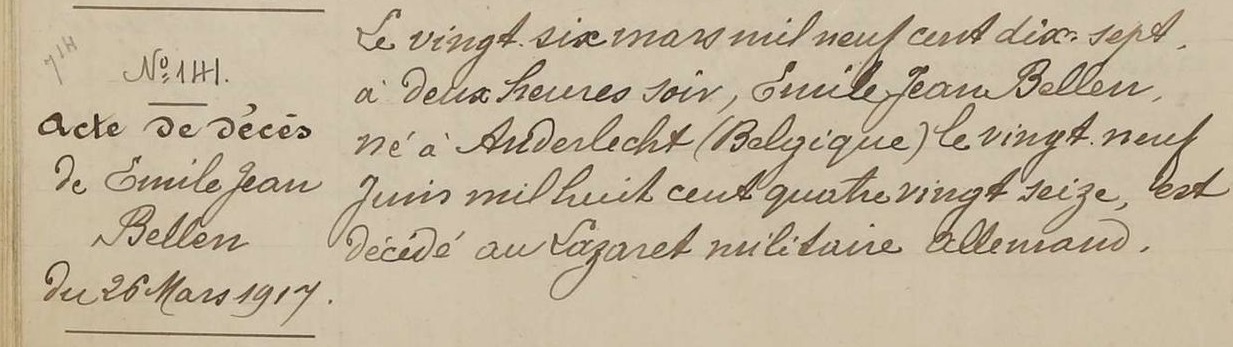 No 141.
Acte de décès
de Emile Jean
Bellen
du 26 Mars 1917.
Le vingt-six mars mil neuf cent dix-sept,
à deux heures soir, Emile Jean Bellen,
né à Anderlecht (Belgique) le vingt-neuf
Juin mil huit cent quatre vingt seize, est
décédé au Lazaret militaire allemand.